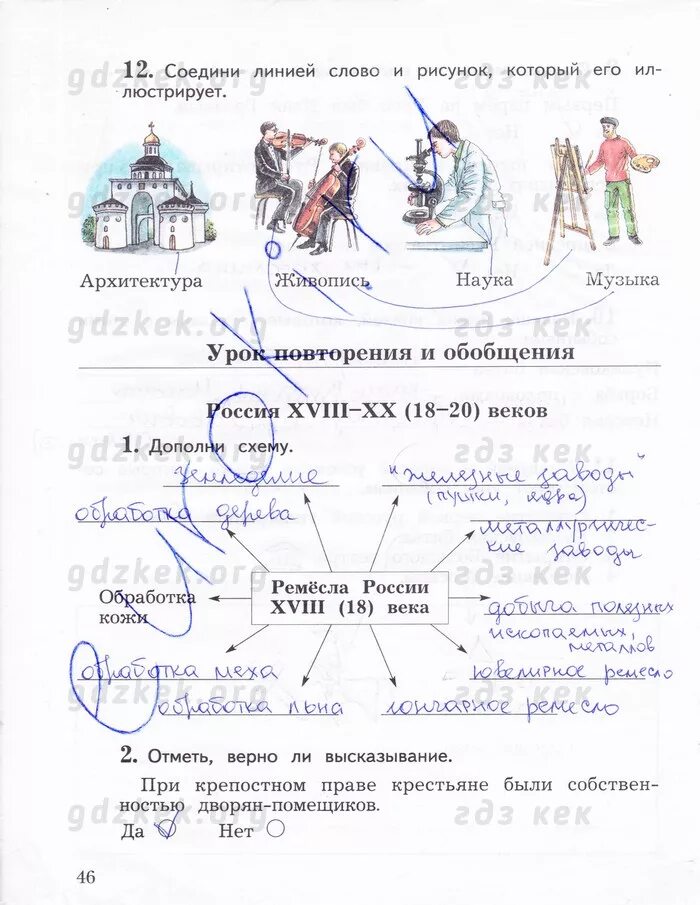 12. Соедини линией слово и рисунок, который его ил-
люстрирует.
Архитектура Живопись Наука Музыка
Урок повторения и обобщения
Россия XVIII–XX (18–20) веков
1. Дополни схему.
земледелие "железные заводы"
(пушки, ядра)
обработка дерева
металлургичес-
кие заводы
Обработка
кожи
Ремёсла России
XVIII (18) века
добыча полезных
ископаемых,
металлов
обработка меха ювелирное ремесло
обработка льна гончарное ремесло
2. Отметь, верно ли высказывание.
При крепостном праве крестьяне были собствен-
ностью дворян-помещиков.
Да Нет
46
gdzkek.org гдз кек